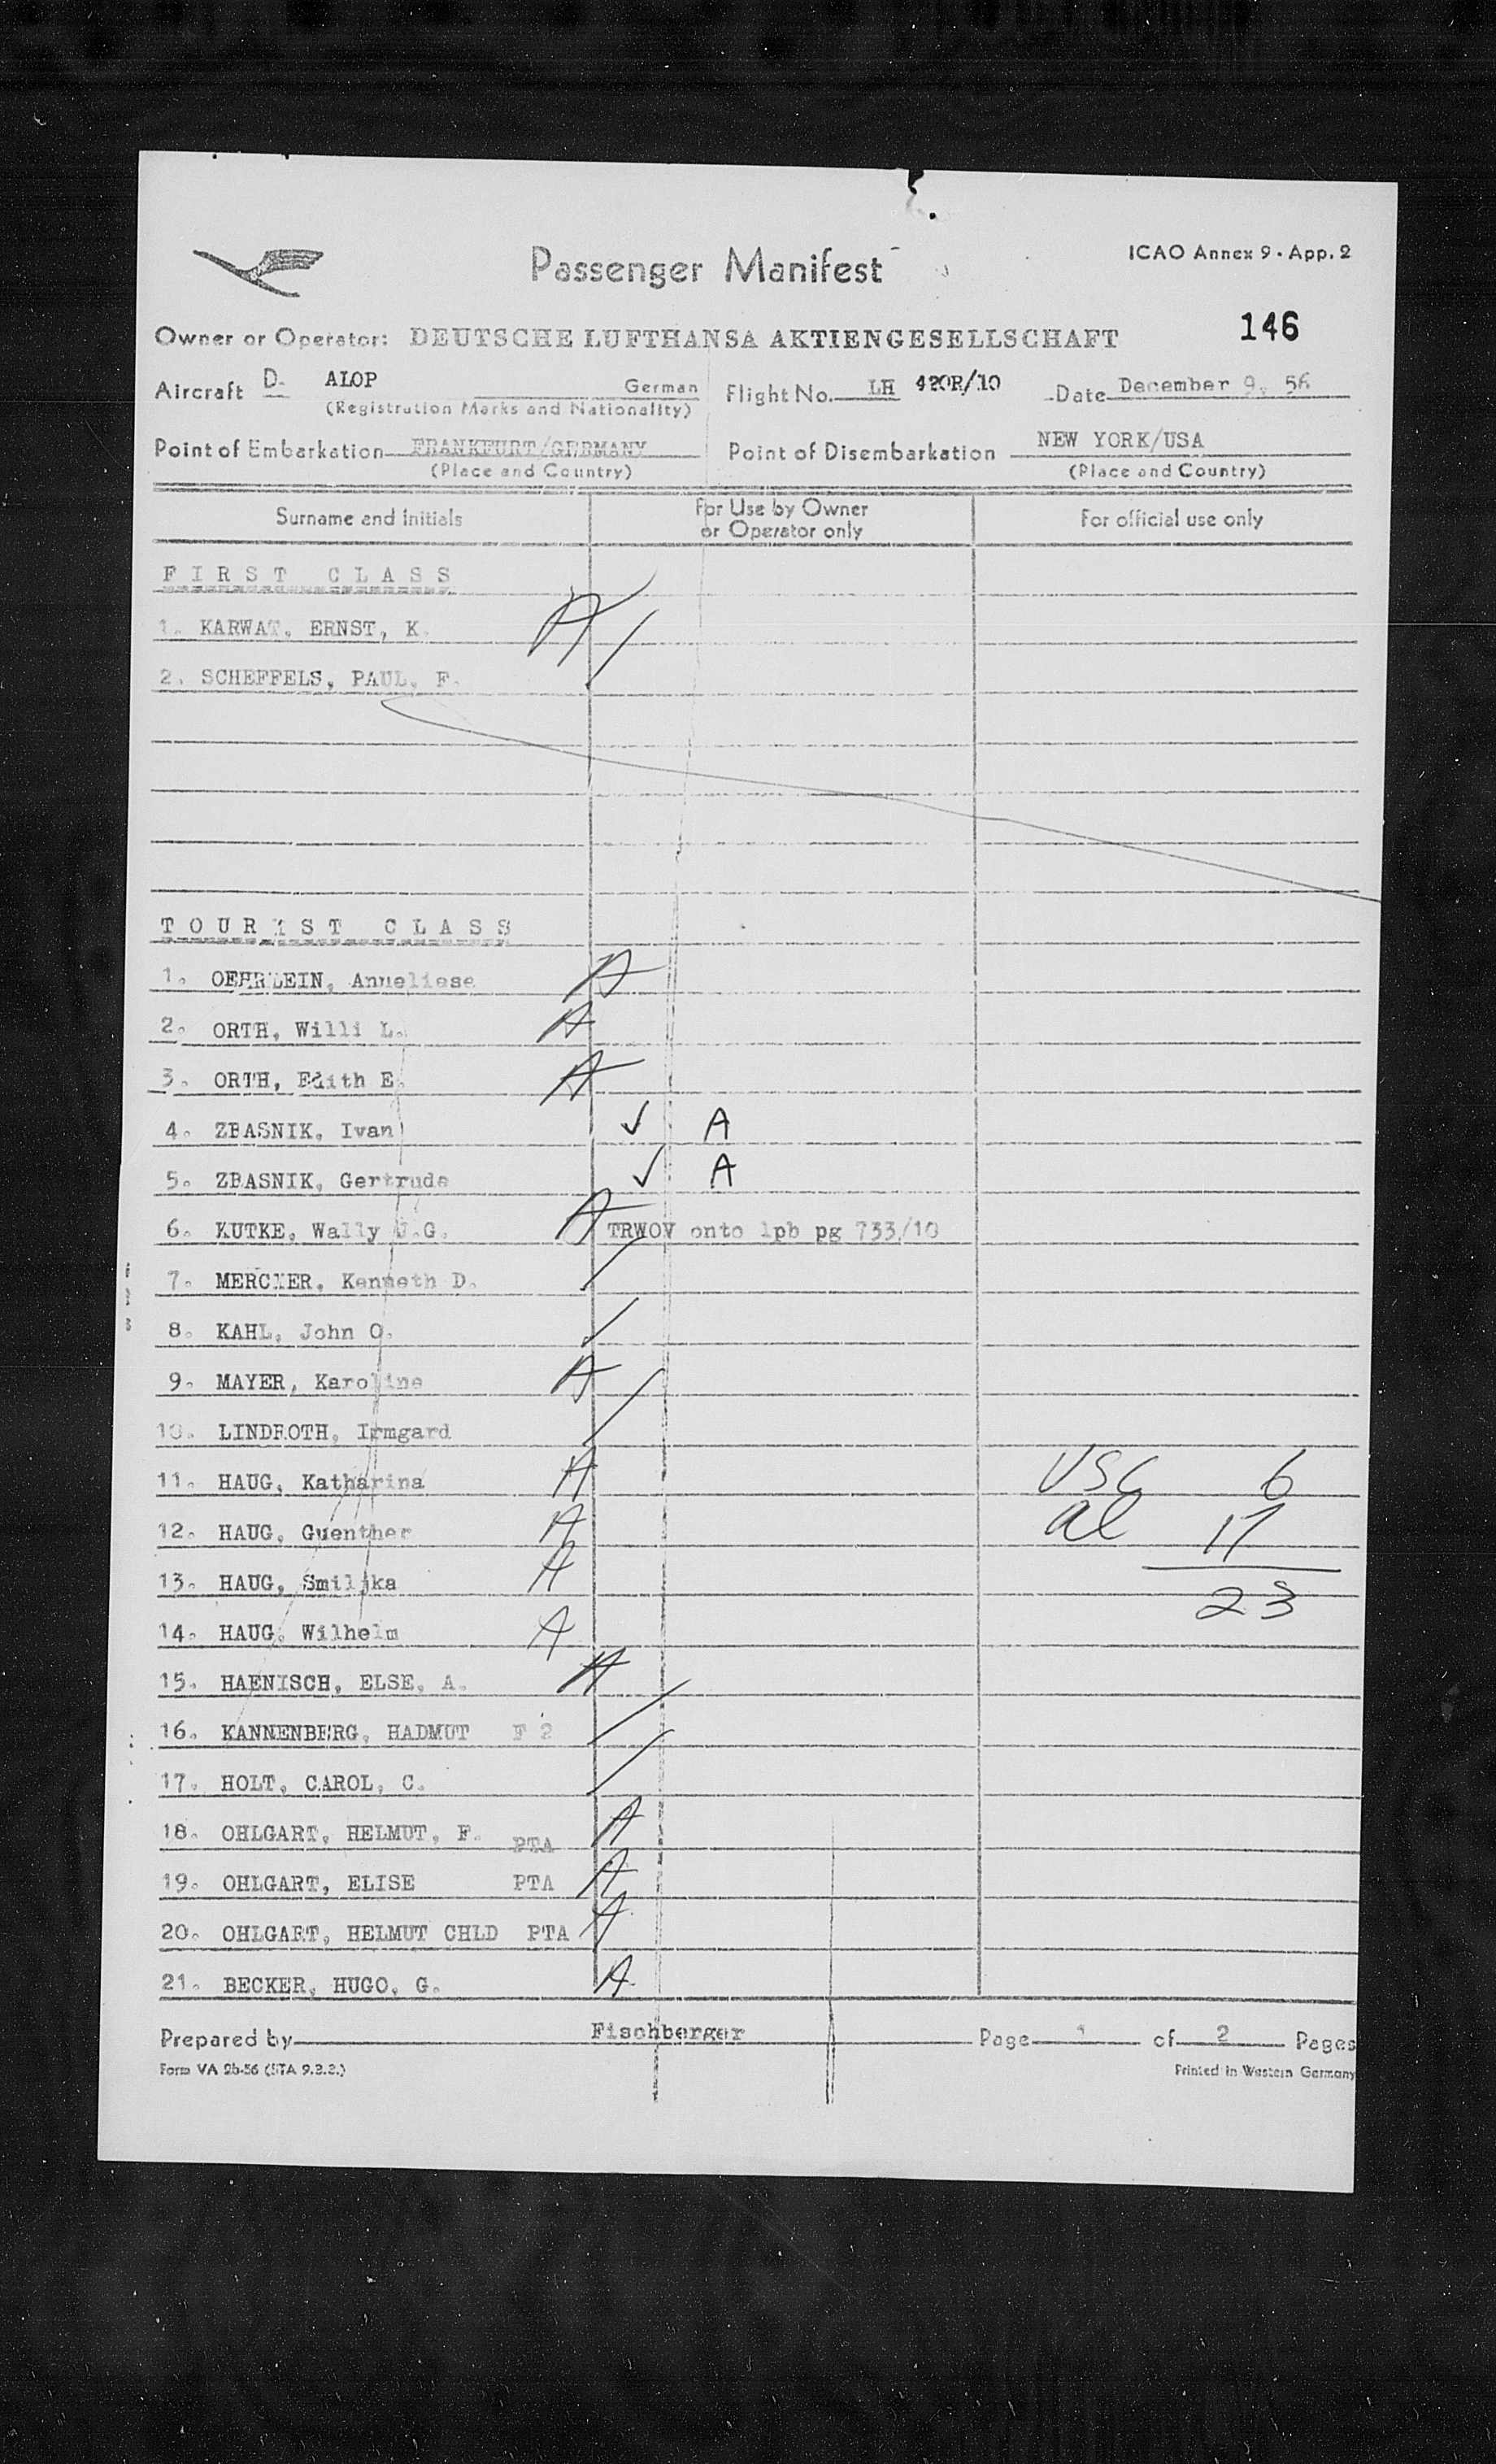 Passenger Manifest
ICAO Annex 9 - App. 2
146
Owner or Operator: DEUTSCHE LUFTHANSA AKTIENGESELLSCHAFT
Aircraft D- ALOP German Flight No. LH 420R/10 Date December 9, 56
(Registration Marks and Nationality)
Point of Embarkation FRANKFURT/GERMANY Point of Disembarkation NEW YORK/USA
(Place and Country) (Place and Country)
Surname and Initials For Use by Owner or Operator only For official use only
FIRST CLASS
1. KARWAT, ERNST, K. A
2. SCHEFFELS, PAUL, F. /
TOURIST CLASS
1. OEHRLEIN, Anneliese A
2. ORTH, Willi L. A
3. ORTH, Edith E. A
4. ZBASNIK, Ivan ✓ A
5. ZBASNIK, Gertrude ✓ A
6. KUTKE, Wally U.G. A TRWOV onto lpb pg 733/10
7. MERCIER, Kenneth D. /
8. KAHL, John O. /
9. MAYER, Karoline A
10. LINDROTH, Irmgard /
11. HAUG, Katharina A USC 6
12. HAUG, Guenther A al 17
13. HAUG, Smiljka A 23
14. HAUG, Wilhelm A
15. HAENISCH, ELSE, A. A
16. KANNENBERG, HADMUT F 2 /
17. HOLT, CAROL, C. /
18. OHLGART, HELMUT, F. PTA A
19. OHLGART, ELISE PTA A
20. OHLGART, HELMUT CHLD PTA A
21. BECKER, HUGO, G. A
Prepared by Fischberger Page 1 of 2 Pages
Form VA 2b-56 (STA 9.3.2.) Printed in Western Germany